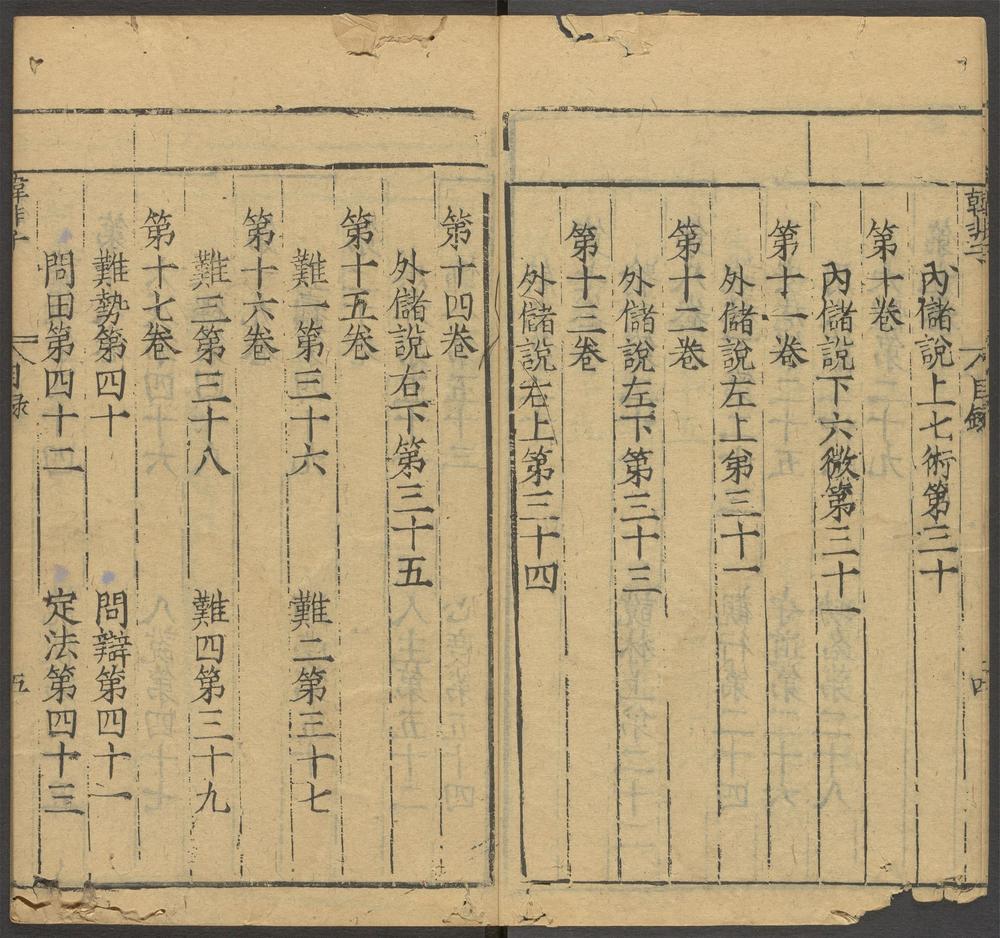 韓非子 目錄 四
內儲說上七術第三十
第十卷
內儲說下六微第三十一
第十一卷
外儲說左上第三十一
第十二卷
外儲說左下第三十三
第十三卷
外儲說右上第三十四
第十四卷
外儲說右下第三十五
第十五卷
難一第三十六 難二第三十七
第十六卷
難三第三十八 難四第三十九
第十七卷
難勢第四十 問辯第四十一
問田第四十二 定法第四十三
韓非子 目錄 五